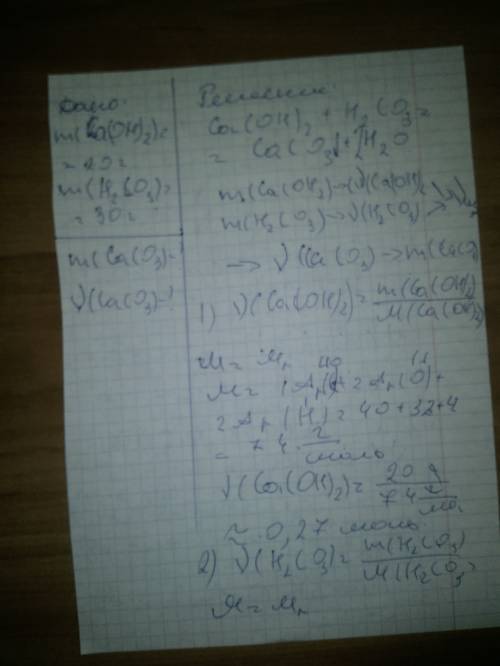 Дано:
m(Ca(OH)₂)=
= 20г
m(H₂CO₃)=
= 30г
m(CaCO₃)-
ν(CaCO₃)-?
Решение:
Ca(OH)₂ + H₂CO₃=
= CaCO₃↓+2H₂O
m(Ca(OH)₂)→ν(Ca(OH)₂
m(H₂CO₃)→ν(H₂CO₃)
→ ν(CaCO₃)→m(CaCO₃
1) ν(Ca(OH)₂)= m(Ca(OH)₂) / M(Ca(OH)₂)
M= Mr
M= 1Ar( + 2Ar(O)+
2Ar(H)= 40+32+4
= 74 г/моль
ν(Ca(OH)₂)= 20 г / 74 г/мо
≈ 0,27 моль
2) ν(H₂CO₃)= m(H₂CO₃) / M(H₂CO₃
M= Mr